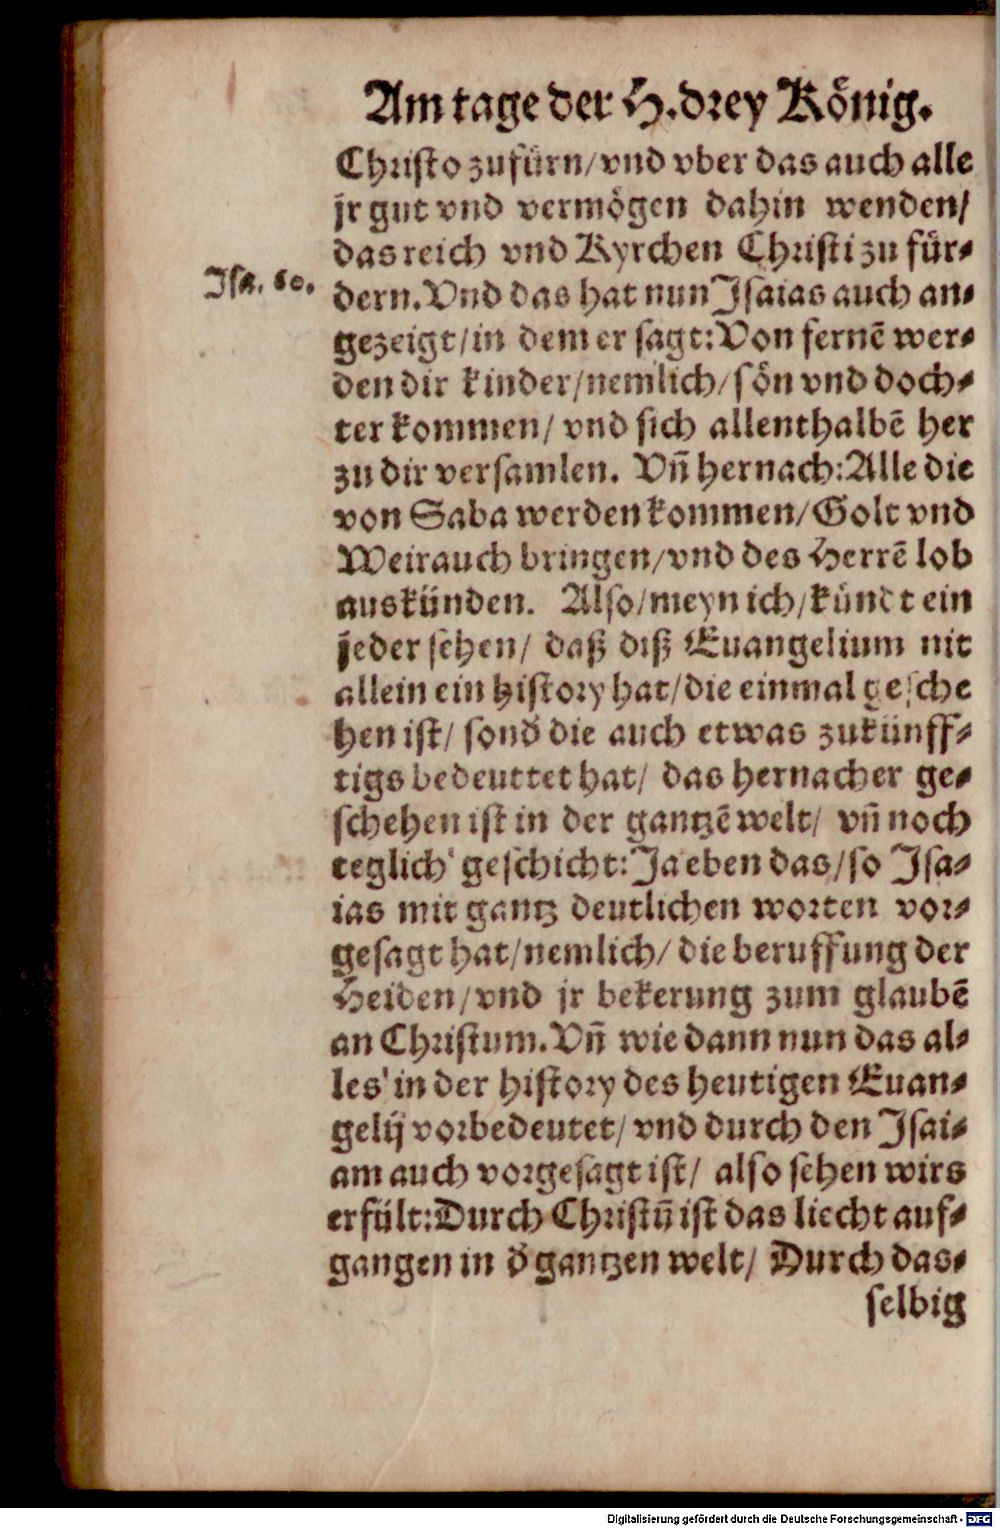 Am tage der H. drey König.
Christo zufürn/ vnd vber das auch alle
jr gut vnd vermögen dahin wenden/
das reich vnd Kyrchen Christi zu für⸗
Isa. 60.
dern. Vnd das hat nun Isaias auch an⸗
gezeigt/ in dem er sagt: Von fernē wer⸗
den dir kinder/ nemlich/ sön vnd doch⸗
ter kommen/ vnd sich allenthalbē her
zu dir versamlen. Vn̄ hernach: Alle die
von Saba werden kommen/ Golt vnd
Weirauch bringen/ vnd des Herrē lob
auskünden. Also/ meyn ich/ kündt ein
jeder sehen/ daß diß Euangelium nit
allein ein history hat/ die einmal gesche
hen ist/ sond̄ die auch etwas zukünff⸗
tigs bedeuttet hat/ das hernacher ge⸗
schehen ist in der gantzē welt/ vn̄ noch
teglich geschicht: Ja eben das/ so Isa⸗
ias mit gantz deutlichen worten vor⸗
gesagt hat/ nemlich/ die beruffung der
Heiden/ vnd jr bekerung zum glaubē
an Christum. Vn̄ wie dann nun das al⸗
les in der history des heutigen Euan⸗
gelij vorbedeutet/ vnd durch den Isai⸗
am auch vorgesagt ist/ also sehen wirs
erfült: Durch Christū ist das liecht auf⸗
gangen in d̄ gantzen welt/ Durch das⸗
selbig
Digitalisierung gefördert durch die Deutsche Forschungsgemeinschaft - DFG